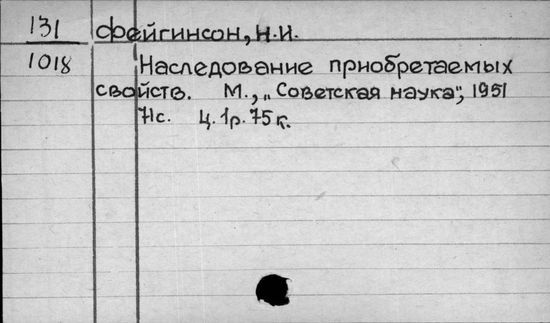 131 Фейгинсон, Н.И.
1018 Наследование приобретаемых
свойств. М., „Советская наука", 1951
71с. Ц. 1р. 75к.